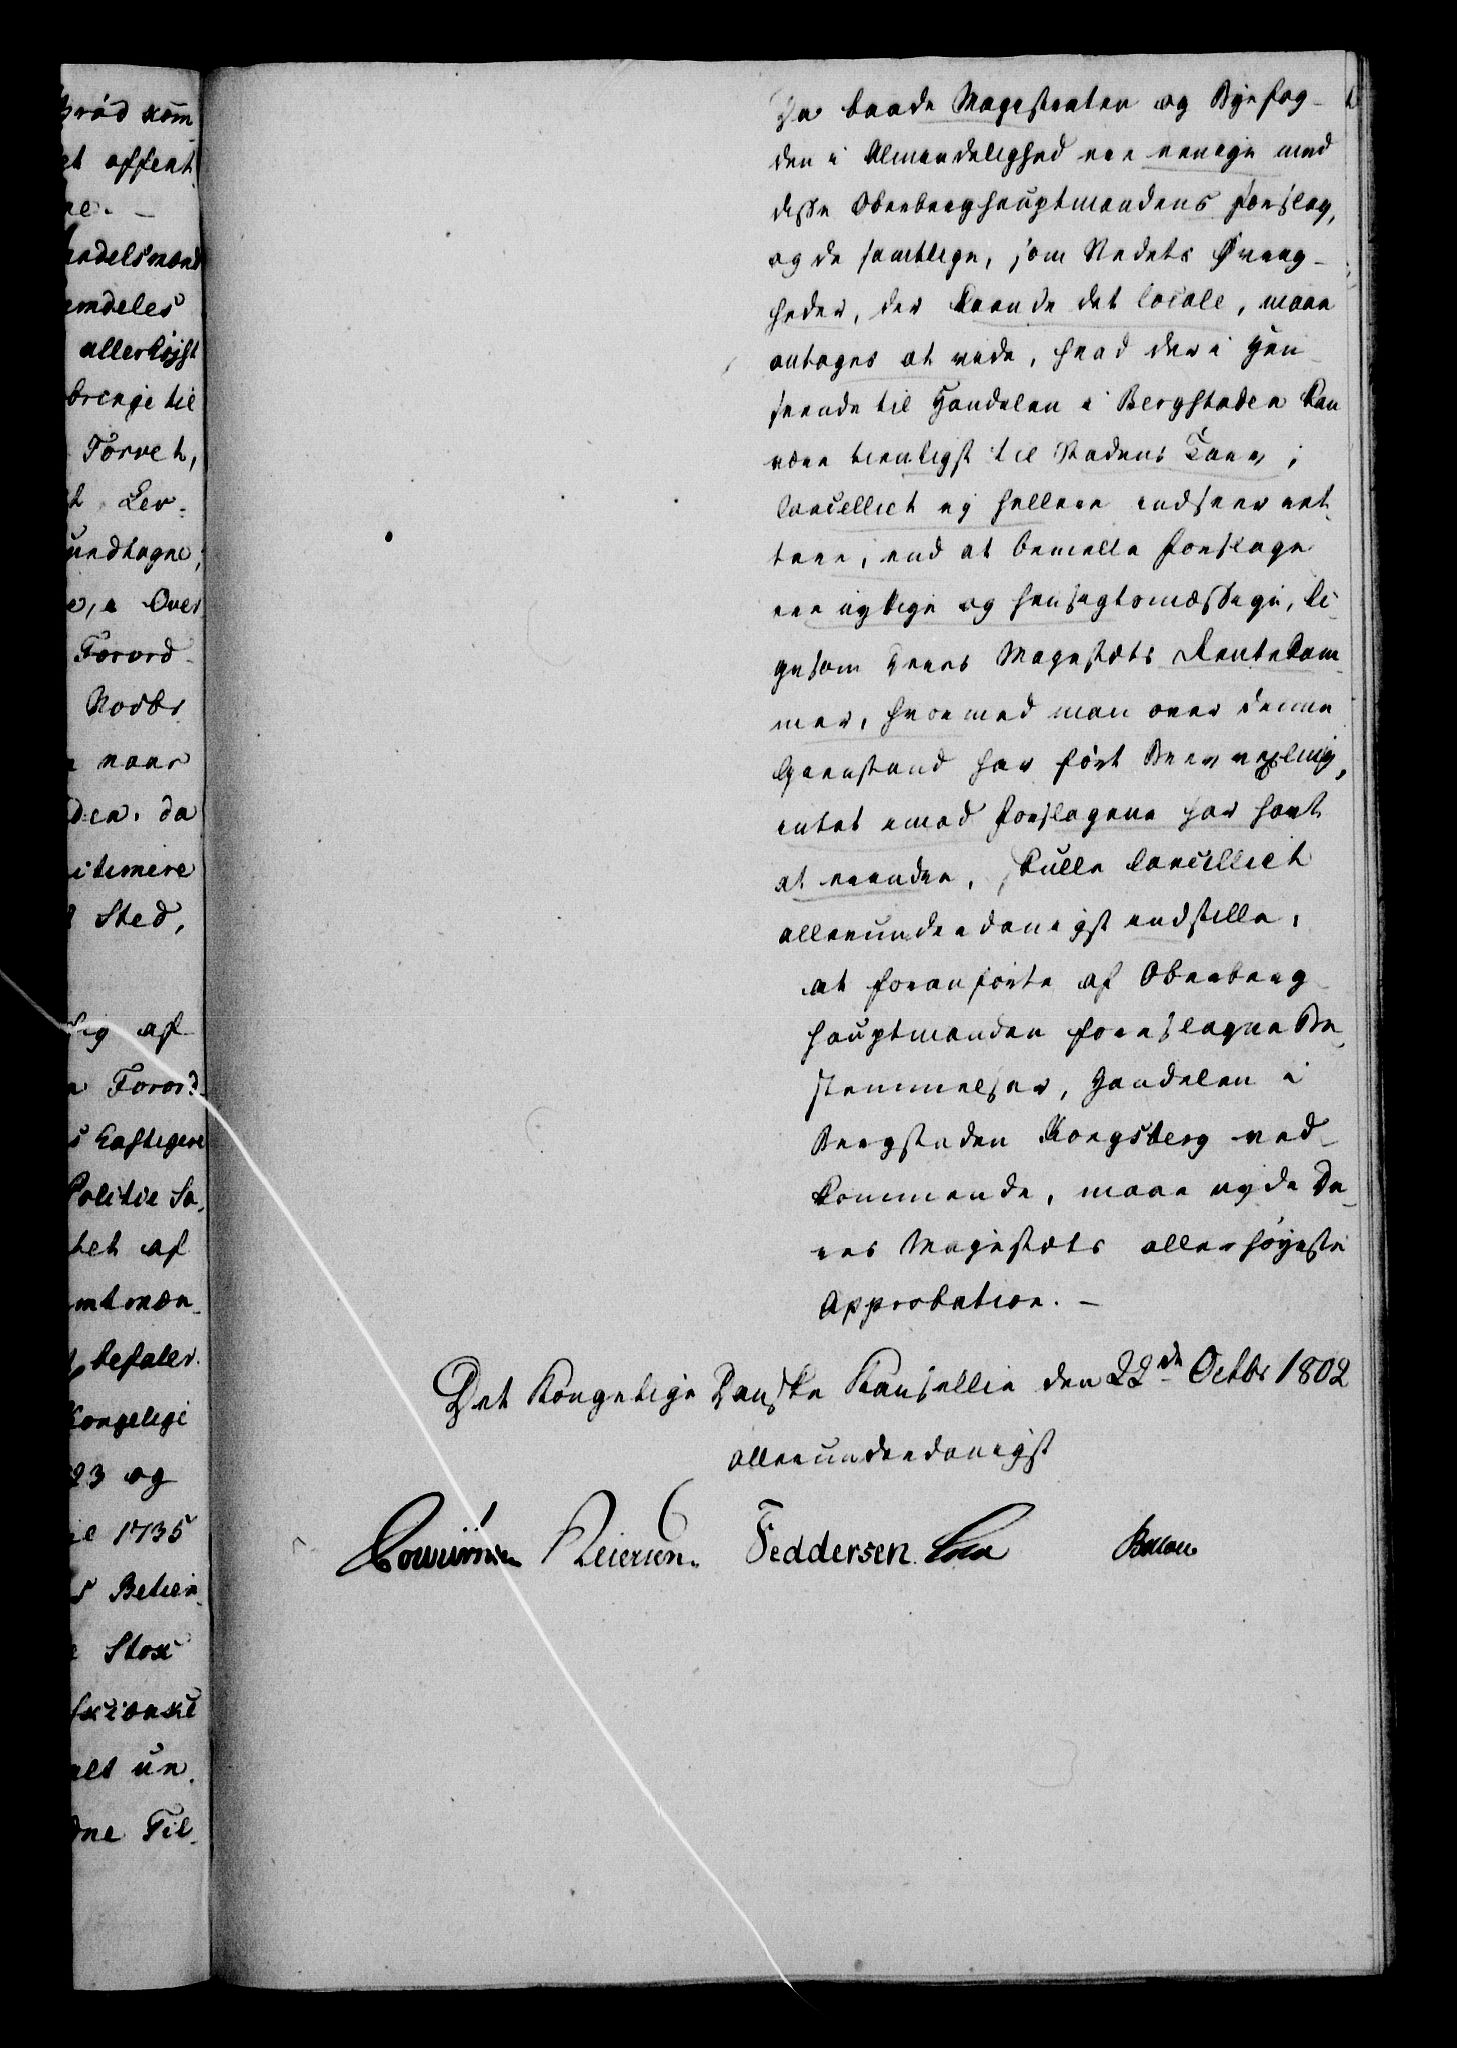 brød kom
et offent
ne. –
andelsmænd
emdeles
allerhøjst
bringe til
Torvet,
Ler-
undtagne;
, i Over
Forord-
Norbr
naar
den, da
itimere
Sted,
sig af
Forord-
s kaftigere
Politie Sa-
tet af
mtmæn-
befaler.
Kongelige
23 og
1735
s Betien-
Stox
alt un-
dne Til-
Da baade Magistraten og Byefog-
den i Almindelighed ere eenige med
disse Oberberghauptmandens Forslag,
og de samtlige, som Stedets Øvrig-
heder, der kiende det locale, maae
antages at vide, hvad der i Hen-
seende til Handelen i Bergstaden kan
være tienligst til Stadens Tarv;
Cancelliet ej heller indseer ret-
tere, end at bemelte Forslage
ere nyttige og hensigtsmæssige, li-
gesom Deres Majestæts Rentekam-
mer, hvormed man over denne
Gienstand har ført Brevvexling,
intet imod Forslagene har havt
at erindre, skulle Cancelliet
allerunderdanigst indstille,
at foranførte af Oberberg-
hauptmanden foreslagne Be-
stemmelser, Handelen i
Bergstaden Kongsberg ved-
kommende, maae nyde De-
res Majestæts allerhøyeste
Approbation. –
Det Kongelige Danske Kancellie den 22de Octbr 1802
allerunderdanigst
Reiersen. Feddersen.